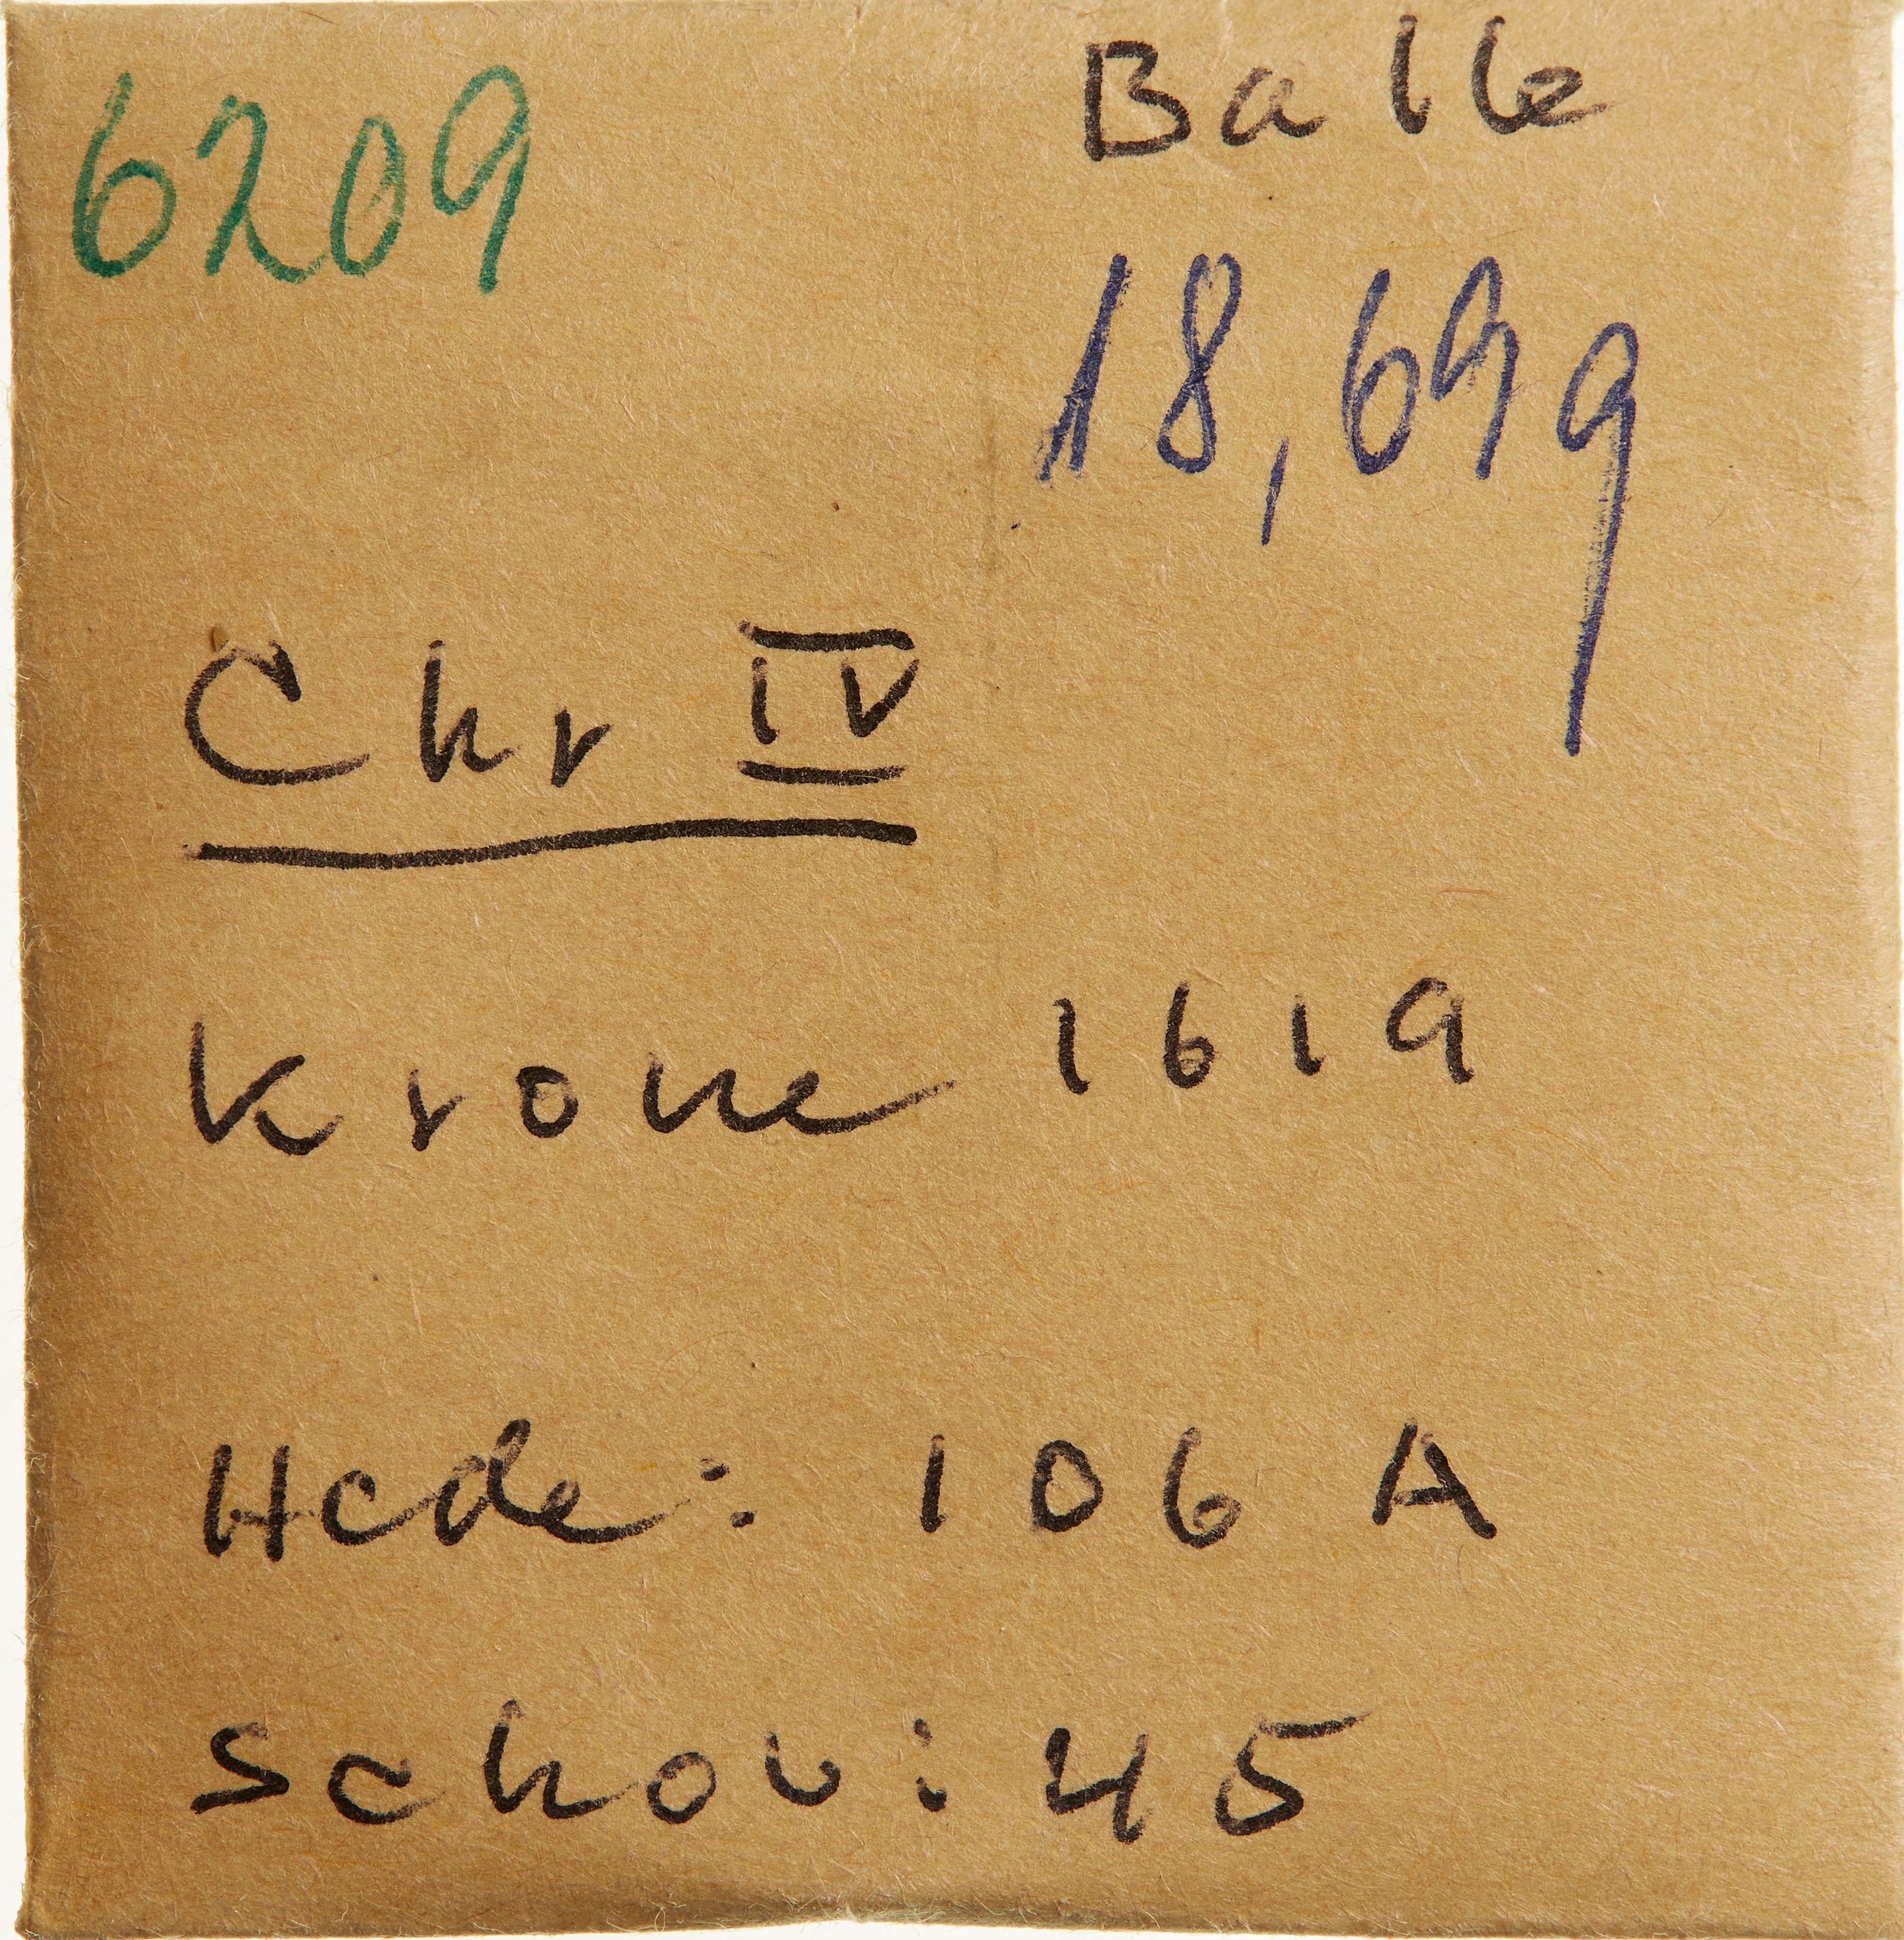 6209 Balle
18,69 g
Chr IV
Krone 1619
Hede: 106 A
Schou: 45